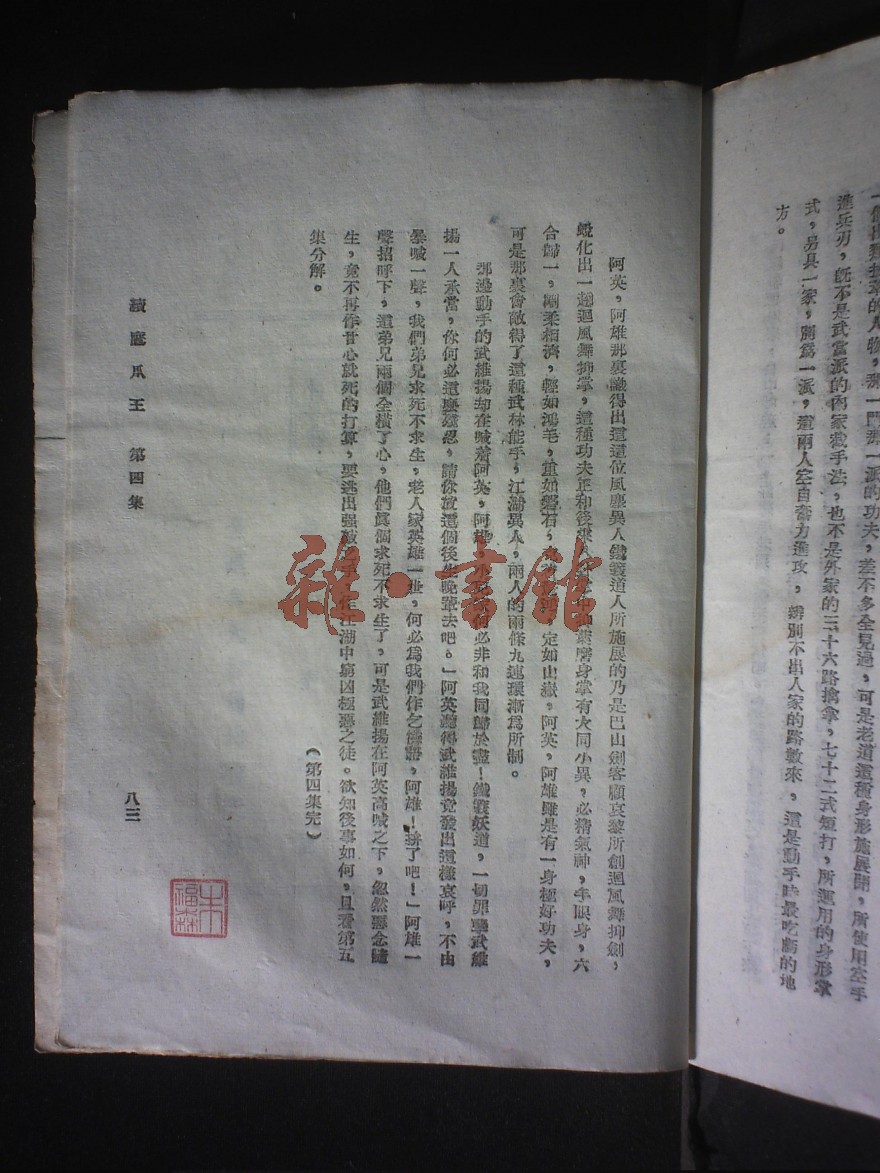 一個
的人物，那一門那一派的功夫，差不多全見過，可是老道這種身形施展開，所使用空手
進兵刃，旣不是武當派的內家截手法，也不是外家的三十六路擒拿，七十二式短打，所運用的身形掌
式，另具一家，別爲一派，這兩人空自奮力進攻，辨別不出人家的路數來，這是動手時最吃虧的地
方。
阿英，阿雄那裏識得出這這位風塵異人鐵蓑道人所施展的乃是巴山劍客顧哀黎所創迴風舞抑劍，
蛻化出一趟迴風舞抑掌，這種功夫正和後來 掌有大同小異，必精氣神，手眼身，六
合歸一，剛柔相濟，輕如鴻毛，重如磐石， 定如山嶽，阿英，阿雄雖是有一身極好功夫，
可是那裏會敵得了這種武林能手，江湖異人，兩人的兩條九連環漸爲所制。
那邊動手的武維揚却在喊着阿英，阿雄， 何必非和我同歸於盡！鐵蓑妖道，一切罪孽武維
揚一人承當，你何必這麼殘忍，請你放這個後生晚輩去吧。」阿英聽得武維揚竟發出這樣哀呼，不由
暴喊一聲，我們弟兄求死不求生，老人家英雄一世，何必爲我們作乞憐語，阿雄！拚了吧！」阿雄一
聲招呼下，這弟兄兩個全橫了心，他們眞個求死不求生了，可是武維揚在阿英高喊之下，忽然惡念陡
生，竟不再作甘心就死的打算，要逃出强敵之手，作江湖中窮凶極惡之徒。欲知後事如何，且看第五
集分解。
（第四集完）
續鷹爪王 第四集 八三
朱福森
雜·書館